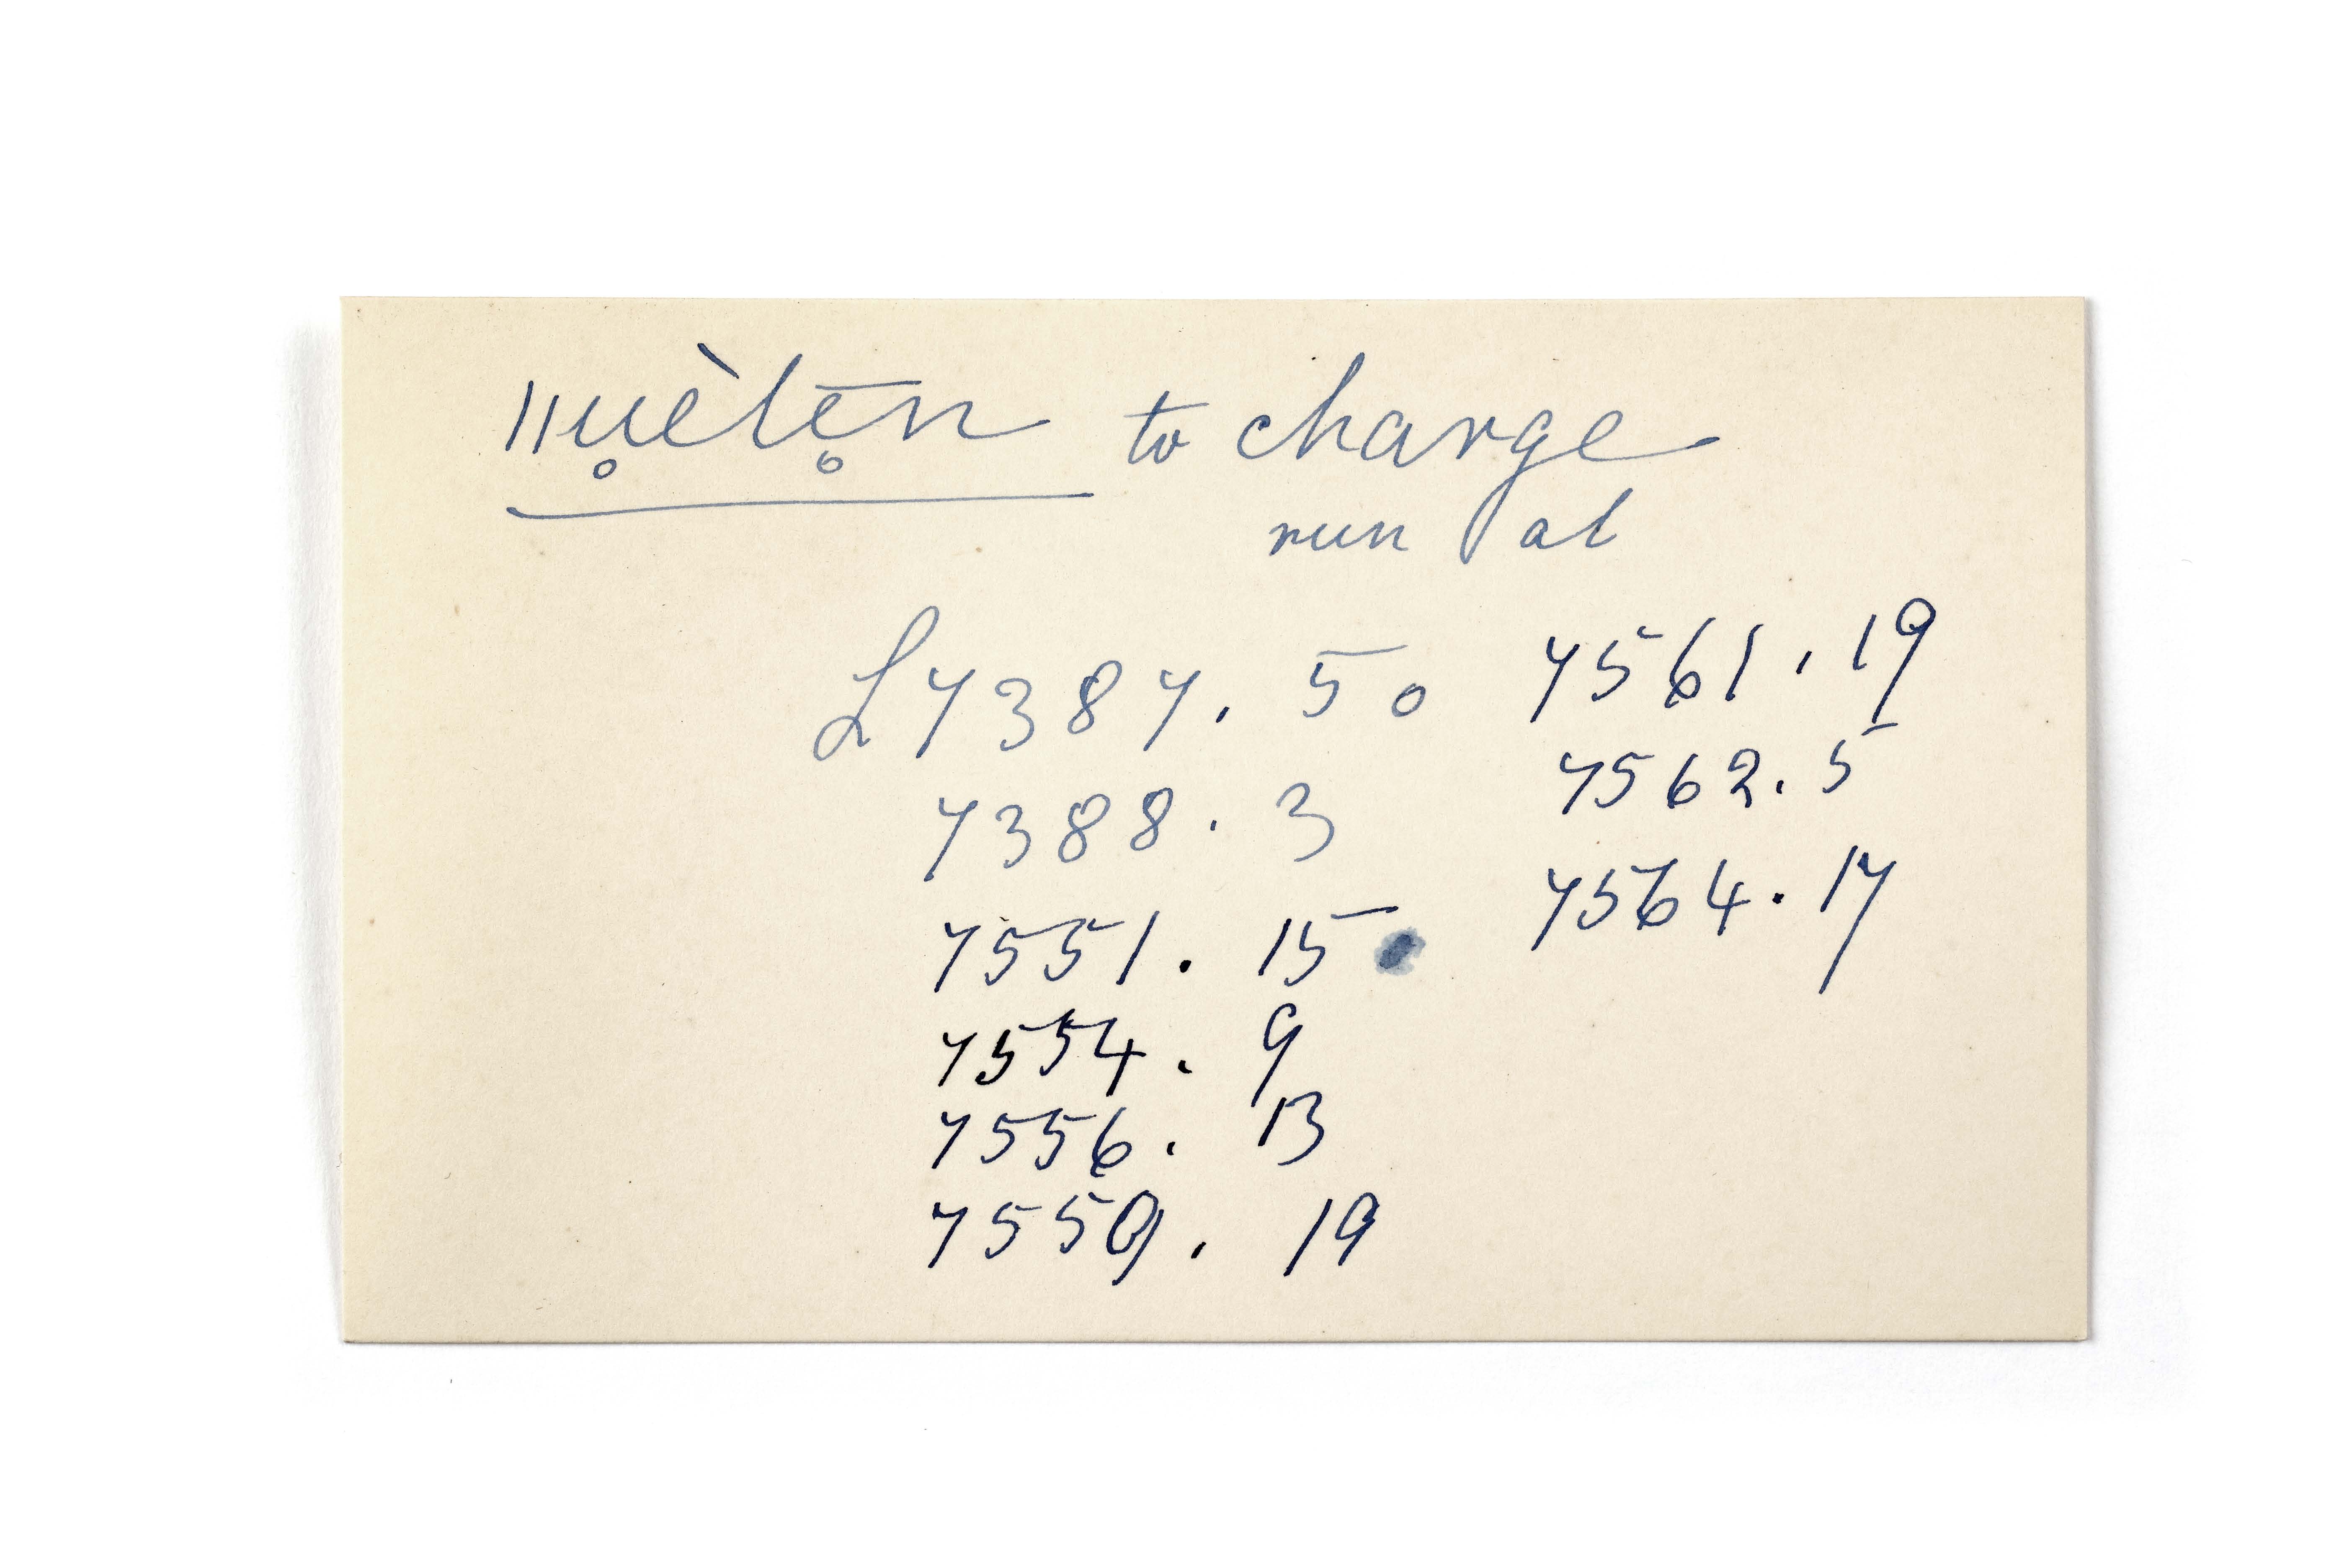 ǁu̥ètē̥n to charge
run at
L 7387. 50
7388. 3
7551. 15
7554. 9
7556. 13
7559. 19
7561. 19
7562. 5
7564. 17